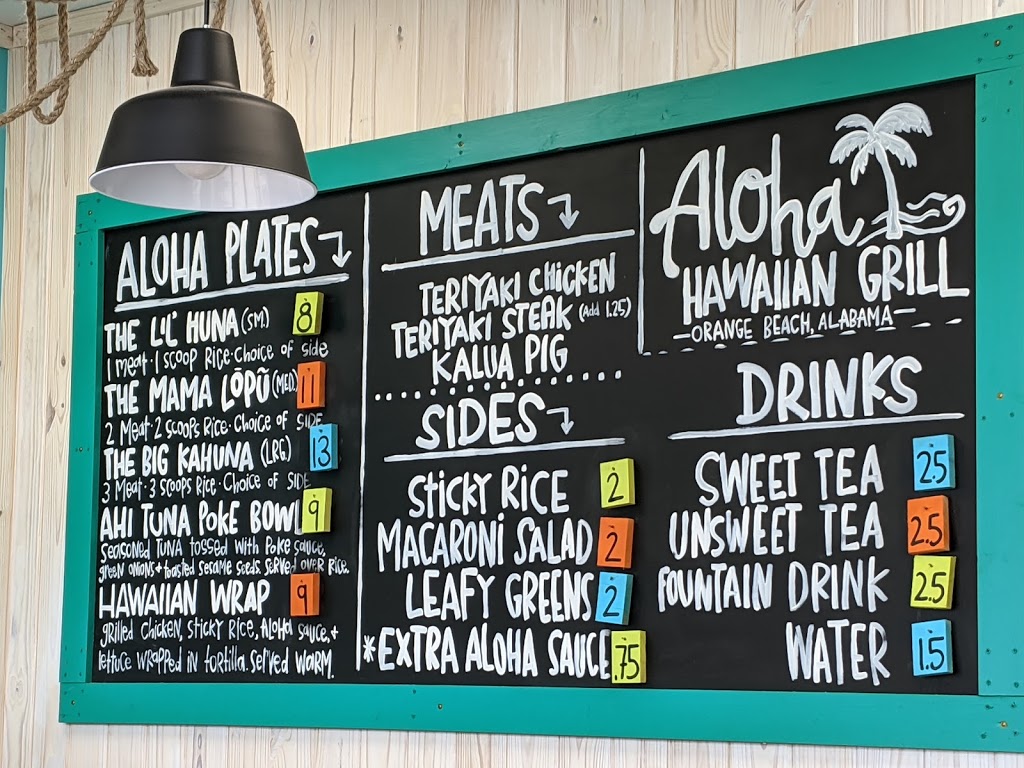 ALOHA PLATES
THE LIL' HUNA (SM.) 8
1 meat · 1 scoop Rice · Choice of side
THE MAMA LŌPŪ (MED.) 11
2 Meat · 2 scoops Rice · Choice of SIDE
THE BIG KAHUNA (LRG.) 13
3 Meat · 3 scoops Rice · Choice of SIDE
AHI TUNA POKE BOWL 9
seasoned TUNA tossed with Poke sauce,
green onions + toasted sesame seeds. Served over Rice.
HAWAIIAN WRAP 9
grilled chicken, sticky rice, Aloha sauce, +
lettuce wrapped in tortilla. served warm.
MEATS
TERIYAKI CHICKEN
TERIYAKI STEAK (Add 1.25)
KALUA PIG
SIDES
STICKY RICE 2
MACARONI SALAD 2
LEAFY GREENS 2
*EXTRA ALOHA SAUCE .75
Aloha
HAWAIIAN GRILL
-ORANGE BEACH, ALABAMA-
DRINKS
SWEET TEA 2.5
UNSWEET TEA 2.5
FOUNTAIN DRINK 2.5
WATER 1.5